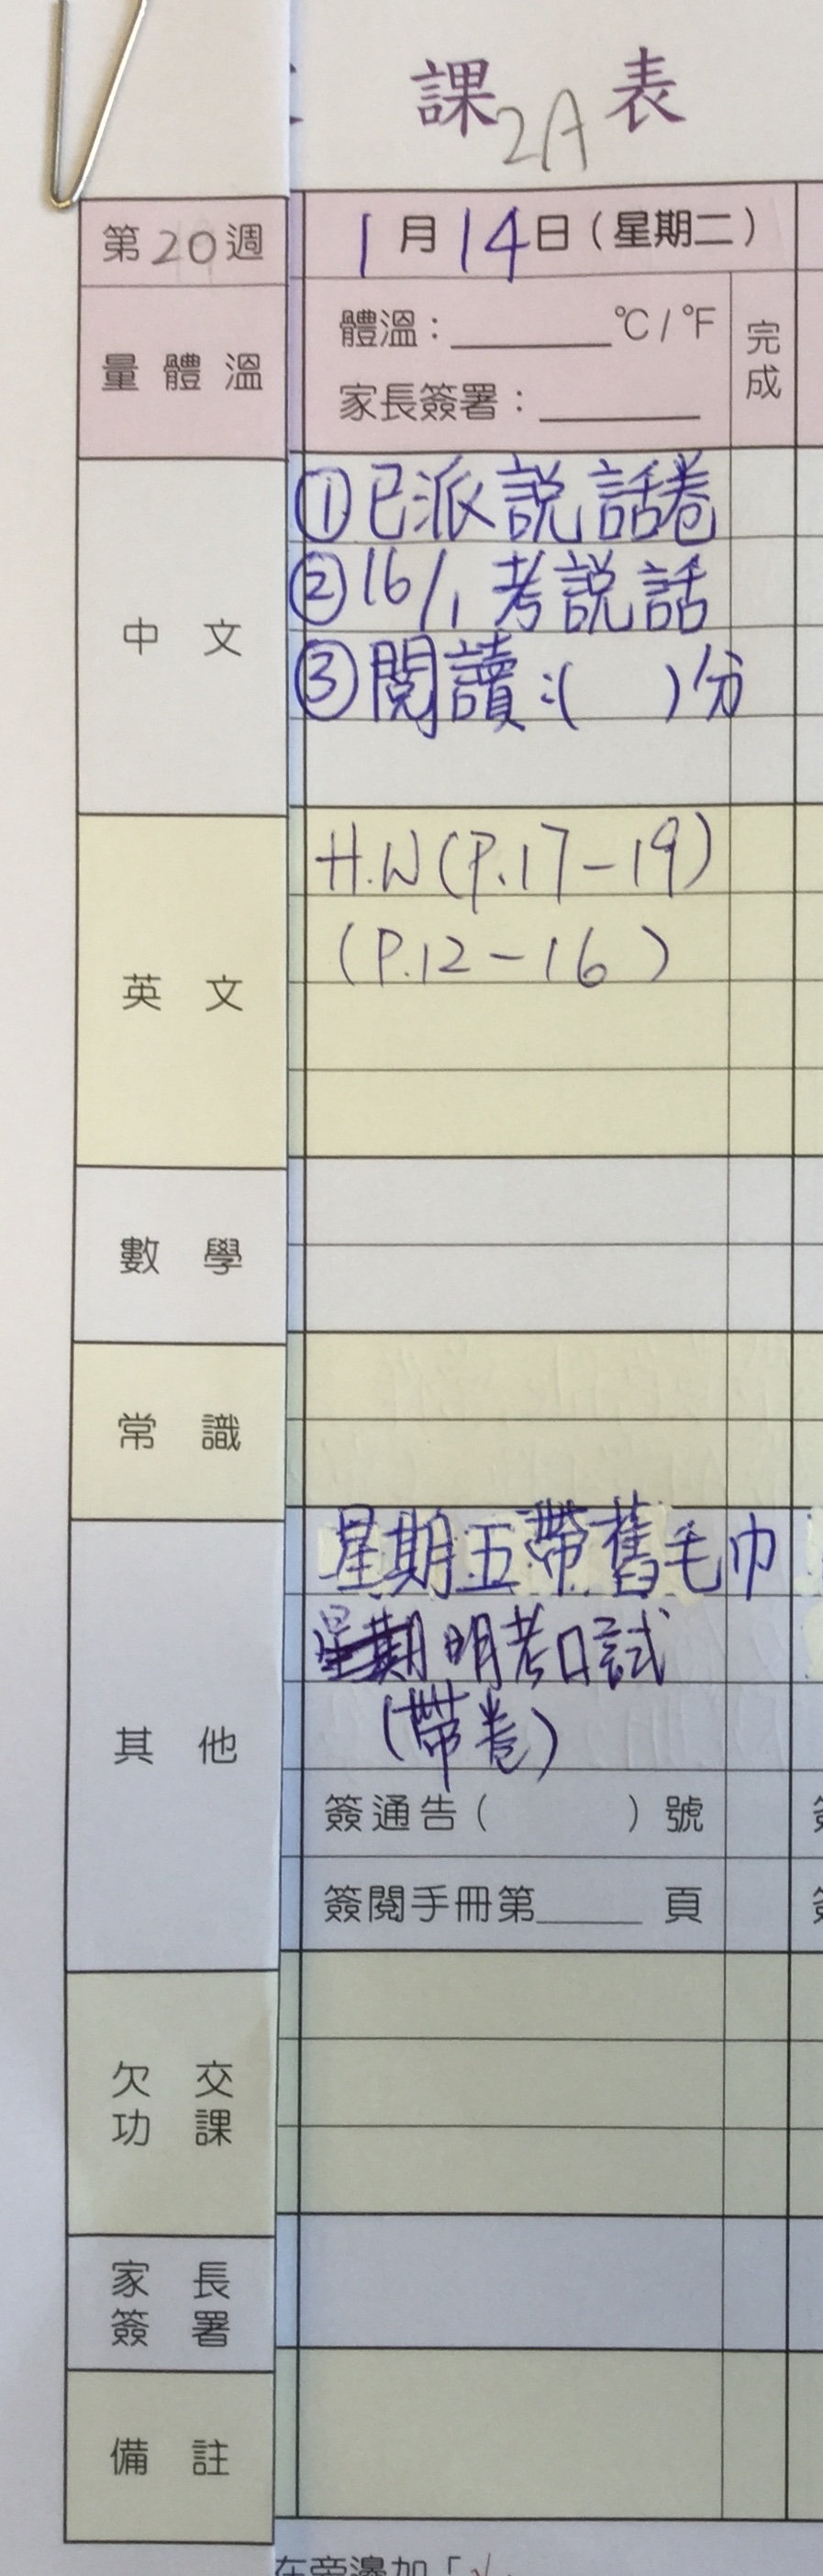 課 表
2A
第20週
1月14日(星期二)
量體溫
體溫:______°C/°F
家長簽署:______
完成
中文
①已派説話卷
②16/1 考説話
③閱讀:( )分
英文
H.W(P.17-19)
(P.12-16)
數學
常識
其他
星期五帶舊毛巾
星期明考口試
(帶卷)
簽通告( )號
簽閱手冊第_____頁
欠交
功課
家長
簽署
備註
在旁邊加「